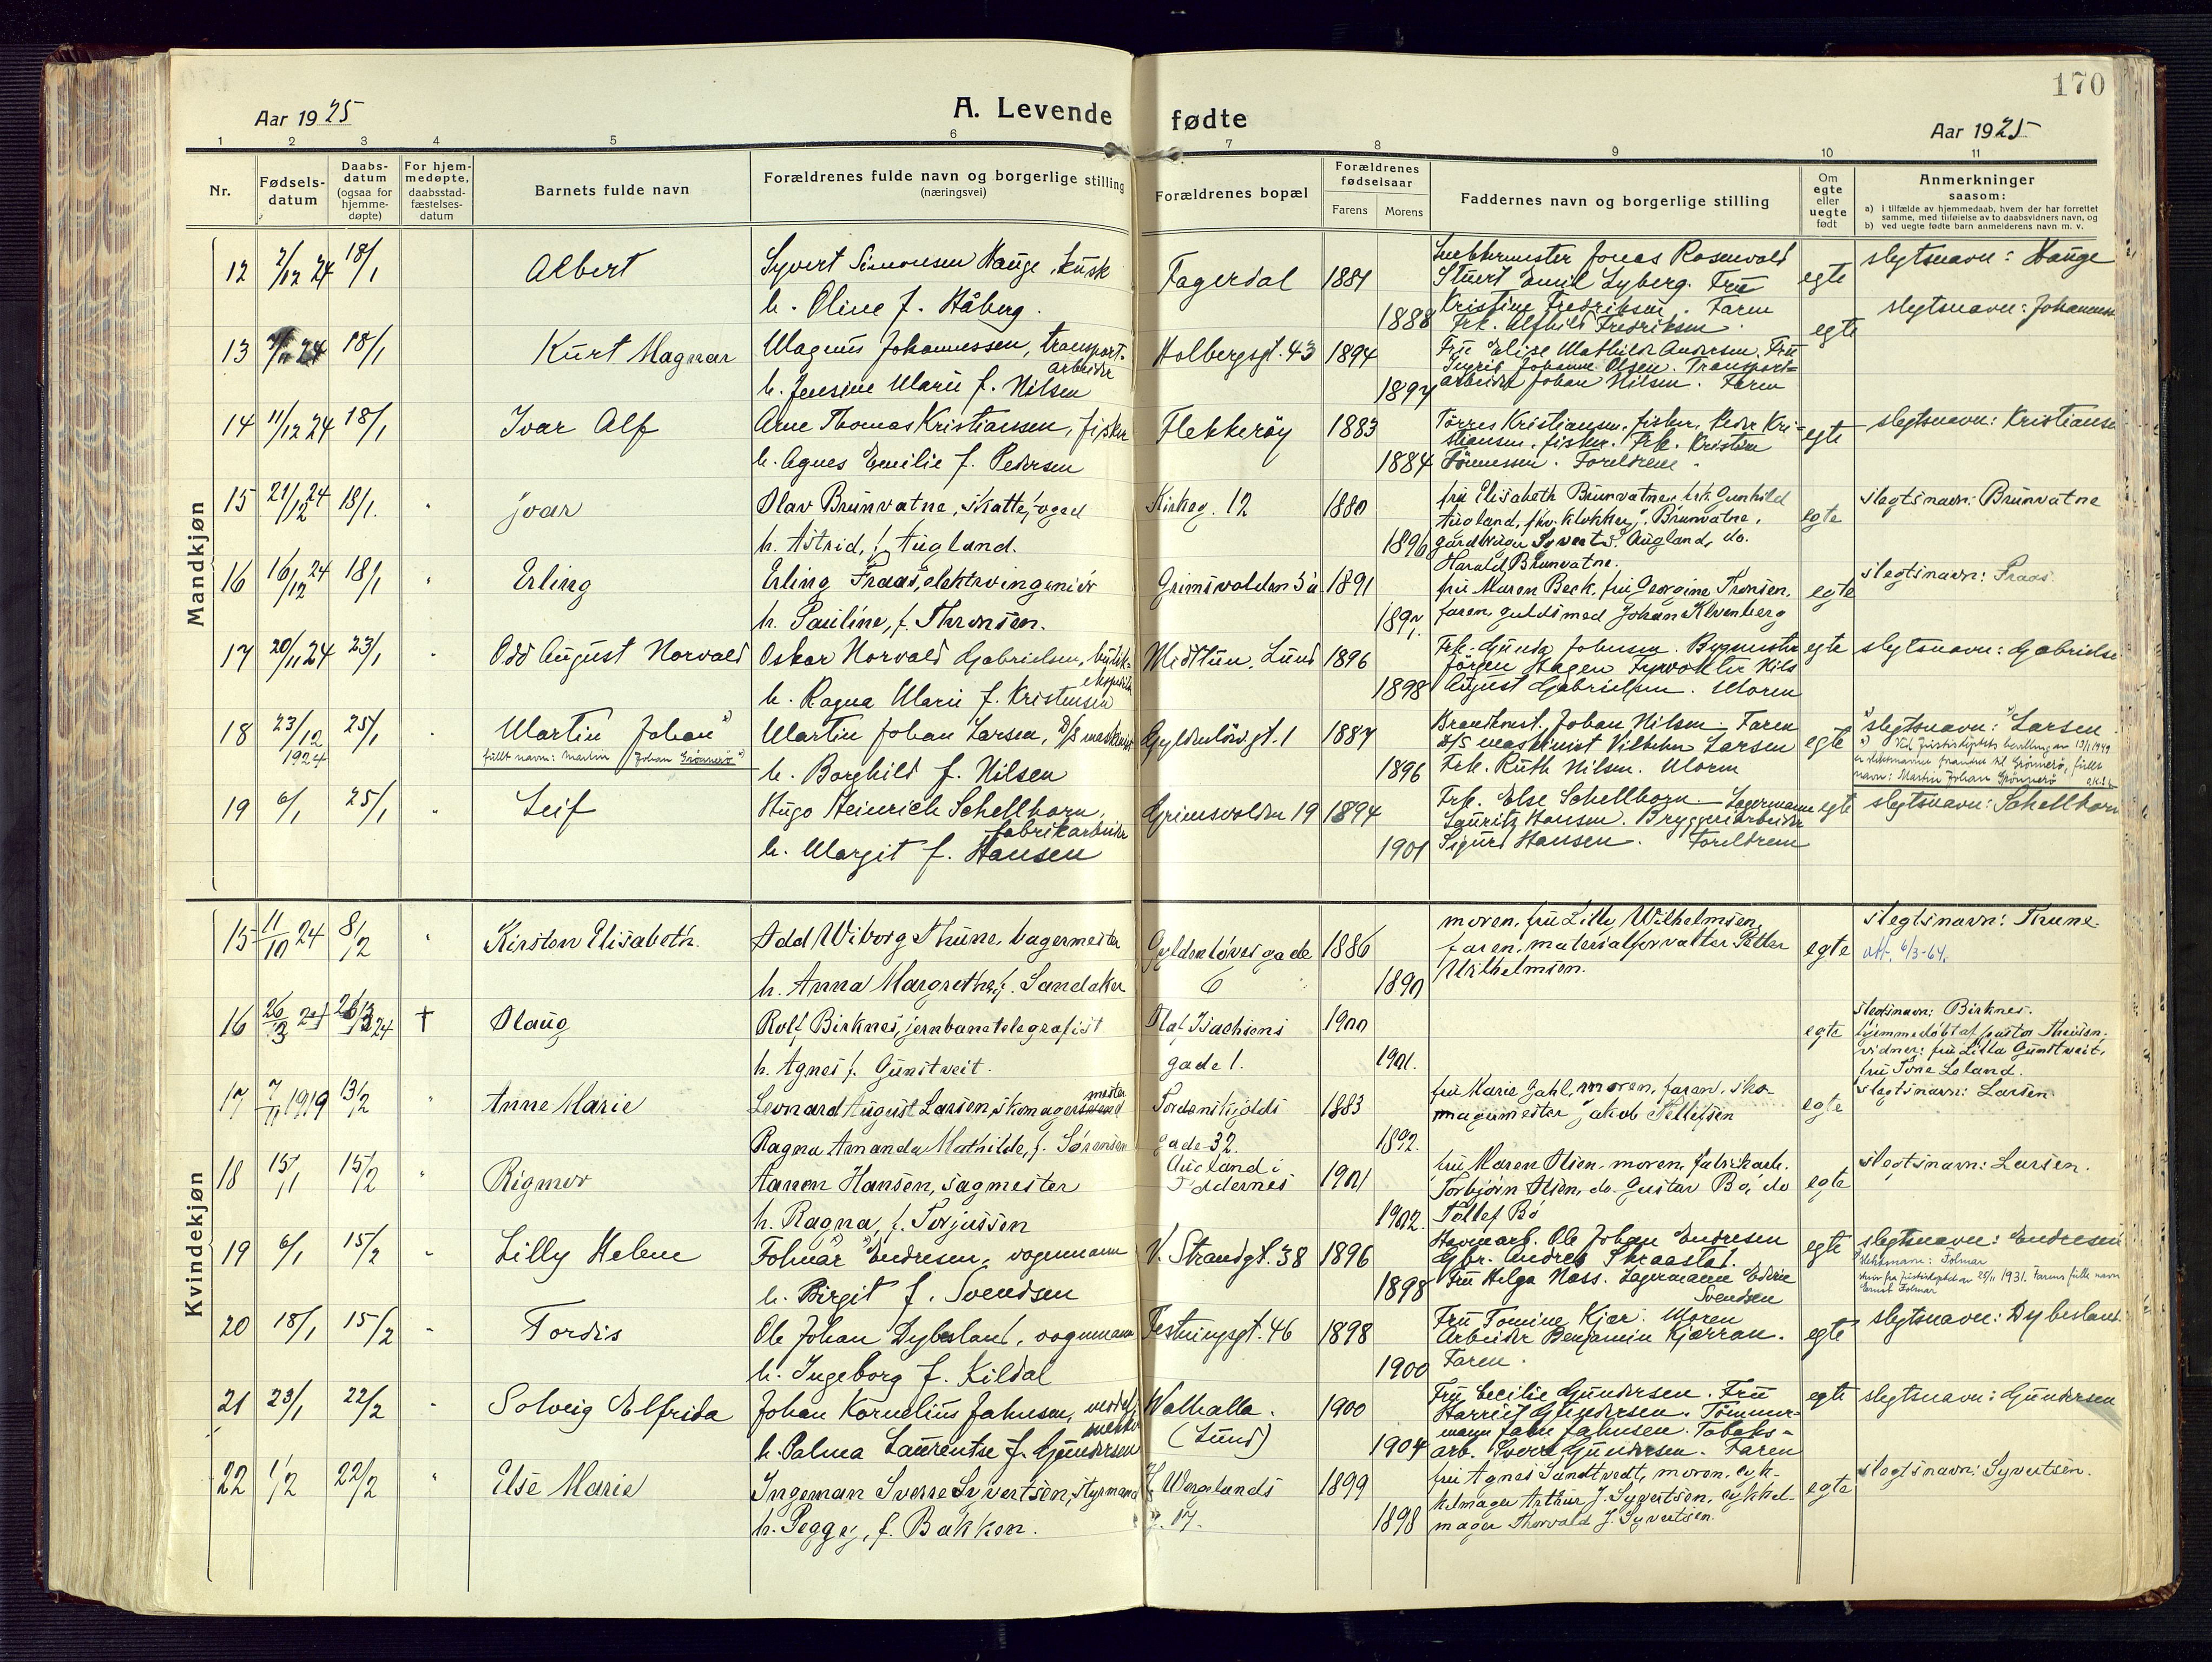 170
Aar 1925
A. Levende fødte
Aar 1925
1 2 3 4 5 6 7 8 9 10 11
Nr.
Fødsels-
datum
Daabs-
datum
(ogsaa for
hjemme-
døpte)
For hjem-
medøpte,
daabsstad-
fæstelses-
datum
Barnets fulde navn
Forældrenes fulde navn og borgerlige stilling
(næringsvei)
Forældrenes bopæl
Forældrenes
fødselsaar
Farens Morens
Faddernes navn og borgerlige stilling
Om
egte
eller
uegte
født
Anmerkninger
saasom:
a) i tilfælde av hjemmedaab, hvem der har forrettet
samme, med tilføielse av to daabsvidners navn, og
b) ved uegte fødte barn anmelderens navn m. v.
Mandkjøn
12 2/12 24 18/1 Albert
Syvert Simonsen Hauge, kusk
h. Olive f. Håberg.
Fagerdal 1881
1888
Jonas Rosenvald
Stuert Emil Lyberg. Fru
Kristine Fredriksen. Faren
Frk. Alfhild Fredriksen.
egte
slegtsnavn: Hauge
13 24 18/1 Kurt Magnar
Magnus Johannessen, transport-
arbeider
h. Jensine Marie f. Nilsen
Holbergsgt. 43 1894
1894
Fru Elise Mathilde Andersen. Fru
Ingrid Johanne Olsen. Transport-
arbeider Johan Nilsen. Faren
egte
slegtsnavn: Johannessen
14 11/12 24 18/1 Ivar Alf
Arne Thomas Kristiansen, fisker
h. Agnes Emilie f. Pedersen
Flekkerøy 1883
1884
Tørres Kristiansen, fisker. Peder Kri-
stiansen, fisker. Frk. Kristine
Tønnessen. Foreldrene.
egte
slegtsnavn: Kristiansen
15 21/12 24 18/1. " Ivar
Olav Brunvatne, skattefoged
h. Astrid, f. Augland.
Kirkeg. 12 1880
1896
fru Elisabeth Brunvatne, frk. Gunhild
Augland, fhv. klokker J. Brunvatne,
gårdbruger Syvert S. Augland, do.
Harald Brunvatne.
egte
slegtsnavn: Brunvatne
16 16/12 24 18/1 " Erling
Erling Fraas, elektroingeniør
h. Pauline, f. Thronsen.
Grimsvolden 5a 1891
1897.
fru Maren Beck, fru Georgine Tronsen,
faren, guldsmed Johan Klevenberg
egte
slegtsnavn: Fraas.
17 20/11 24 23/1 " Odd August Norvald
Oskar Norvald Gabrielsen, butik-
ekspeditør
h. Ragna Marie f. Kristensen
Midttun, Lund 1896
1898
Frk. Gunda Johnsen. Bygmester
Jörgen Hagen Fyrvokter Nils
August Gabrielsen. Moren
egte
slegtsnavn: Gabrielsen
18 23/12 1924 25/1 " Martin Johan x)
fullt navn: Martin Johan Grönnerö x)
Martin Johan Larsen, D/S maskinist
h. Borghild f. Nilsen
Gyldenløvsgt. 1 1887
1896
Brandkonst. Johan Nilsen. Faren
D/S maskinist Vilhelm Larsen
Frk. Ruth Nilsen. Moren
egte
x) slegtsnavn: Larsen
x) Ved Justisdeptets bevilling av 13/1 1949
er slektsnavnet forandret til Grönnerö, fullt
navn: Martin Johan Grönnerö
19 6/1 25/1 " Leif
Hugo Heinrich Schellhorn,
fabrikarbeider
h. Margit f. Hansen
Grimsvolden 19 1894
1901
Frk. Else Schellhorn. Lagermann
Lauritz Hansen. Bryggeriarbeider
Sigurd Hansen. Foreldrene
egte
slegtsnavn: Schellhorn
Kvindekjøn
15 11/10 24 8/2 " Kirsten Elisabeth.
Odd Wiborg Thune, bagermester
h. Anna Margrethe, f. Sandaker
Gyldenløves gade
6
1886
1890
moren, fru Lilly Wilhelmsen,
faren, materialforvalter Petter
Wilhelmsen.
egte
slegtsnavn: Thune
att. 6/3-64.
16 24 24 † Olaug
Rolf Birknes, jernbanetelegrafist
h. Agnes f. Gunstveit.
Olaf Isachsens
gade 1.
1900
1901.
egte
slegtsnavn: Birknes.
hjemmedøbt af Gustav Theisen.
vidner: fru Lilla Gunstveit,
fru Tone Leland.
17 7/11 1919 13/2 " Anne Marie
Leonard August Larsen, skomagersvend
mester
Ragna Amanda Mathilde, f. Sørensen
Tordenskjolds
gade 32.
1883
1892.
fru Marie Dahl, moren, faren, sko-
magermester Jakob Tellefsen
egte
slegtsnavn: Larsen
18 15/1 15/2 " Rigmor
Aanen Hansen, sagmester
h. Ragna, f. Torjussen
Augland i
Oddernes
1901
1902.
fru Maren Olsen, moren, fabrikarb.
Torbjørn Olsen, do. Gustav Bø, do
Tellef Bø
egte
slegtsnavn: Larsen.
19 6/1 15/2 " Lilly Helene
Folmar x) Endresen, vognmann
h. Birgit f. Svendsen
V. Strandgt. 38 1896
1898
Havnearb. Ole Johan Endresen
Gbr. Andreas Skraastad.
Fru Helga Næss. Lagermann Edvin
Svendsen
egte
slegtsnavn: Endresen
slektsnavn: Folmar
skriv fra Justisdeptet av 25/11 1931. Farens fulle navn
Ernst Folmar
20 18/1 15/2 " Tordis
Ole Johan Dybesland, vognmann
h. Ingeborg f. Kildal
Festningsgt. 46 1898
1900
Fru Tomine Kjær. Moren
Arbeider Benjamin Kjærran.
Faren.
egte
slegtsnavn: Dybesland
21 23/1 22/2 " Solveig Elfrida
Johan Kornelius Jahnsen,
h. Palma Laurentse f. Gundersen
Valhalla.
(Lund)
1900
1904
Fru Cecilie Gundersen. Fru
Harriet Gundersen. Tömmer-
mann Jahn Jahnsen. Tobaks-
arb. Sverre Gundersen. Faren
egte
slegtsnavn: Gundersen
22 1/2 22/2 " Else Marie
Ingeman Sverre Syvertsen, styrmand
h. Peggy, f. Bakken.
H. Wergelands
g. 17.
1899
1898
fru Agnes Sandtvedt, moren, cyk-
kelmager Arthur J. Syvertsen, cykkel-
mager Thorvald J. Syvertsen.
egte
slegtsnavn: Syvertsen.